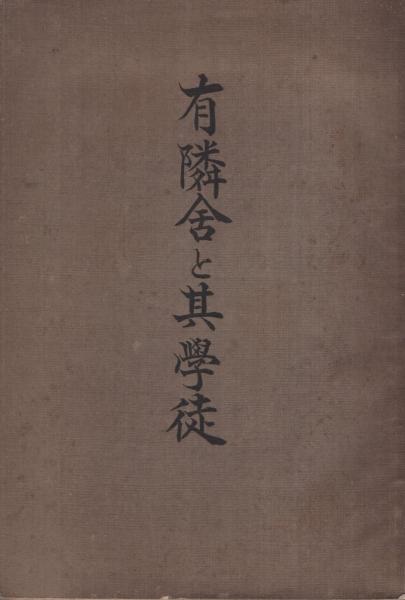 有隣舎と其學徒